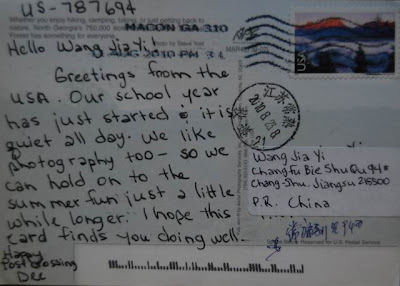 US-787694
Whether you enjoy hiking, camping, biking, or just getting back to
nature, North Georgia's 750,000
Forest has something for everyone.
MACON GA 310
AUG 2010 PM
Hello Wang Jia Yi!
Greetings from the
USA. Our school year
has just started & it is
quiet all day. We like
photography too- so we
can hold on to the
summer fun just a little
while longer. I hope this
card finds you doing well.
Happy
Postcrossing
Dee
USA
江苏常熟
2010.8.25.8
Wang Jia Yi
Chang Fu Bie Shu Qu 94#
Chang-Shu, Jiangsu 215500
P.R. China
Reserved for U.S. Postal Service